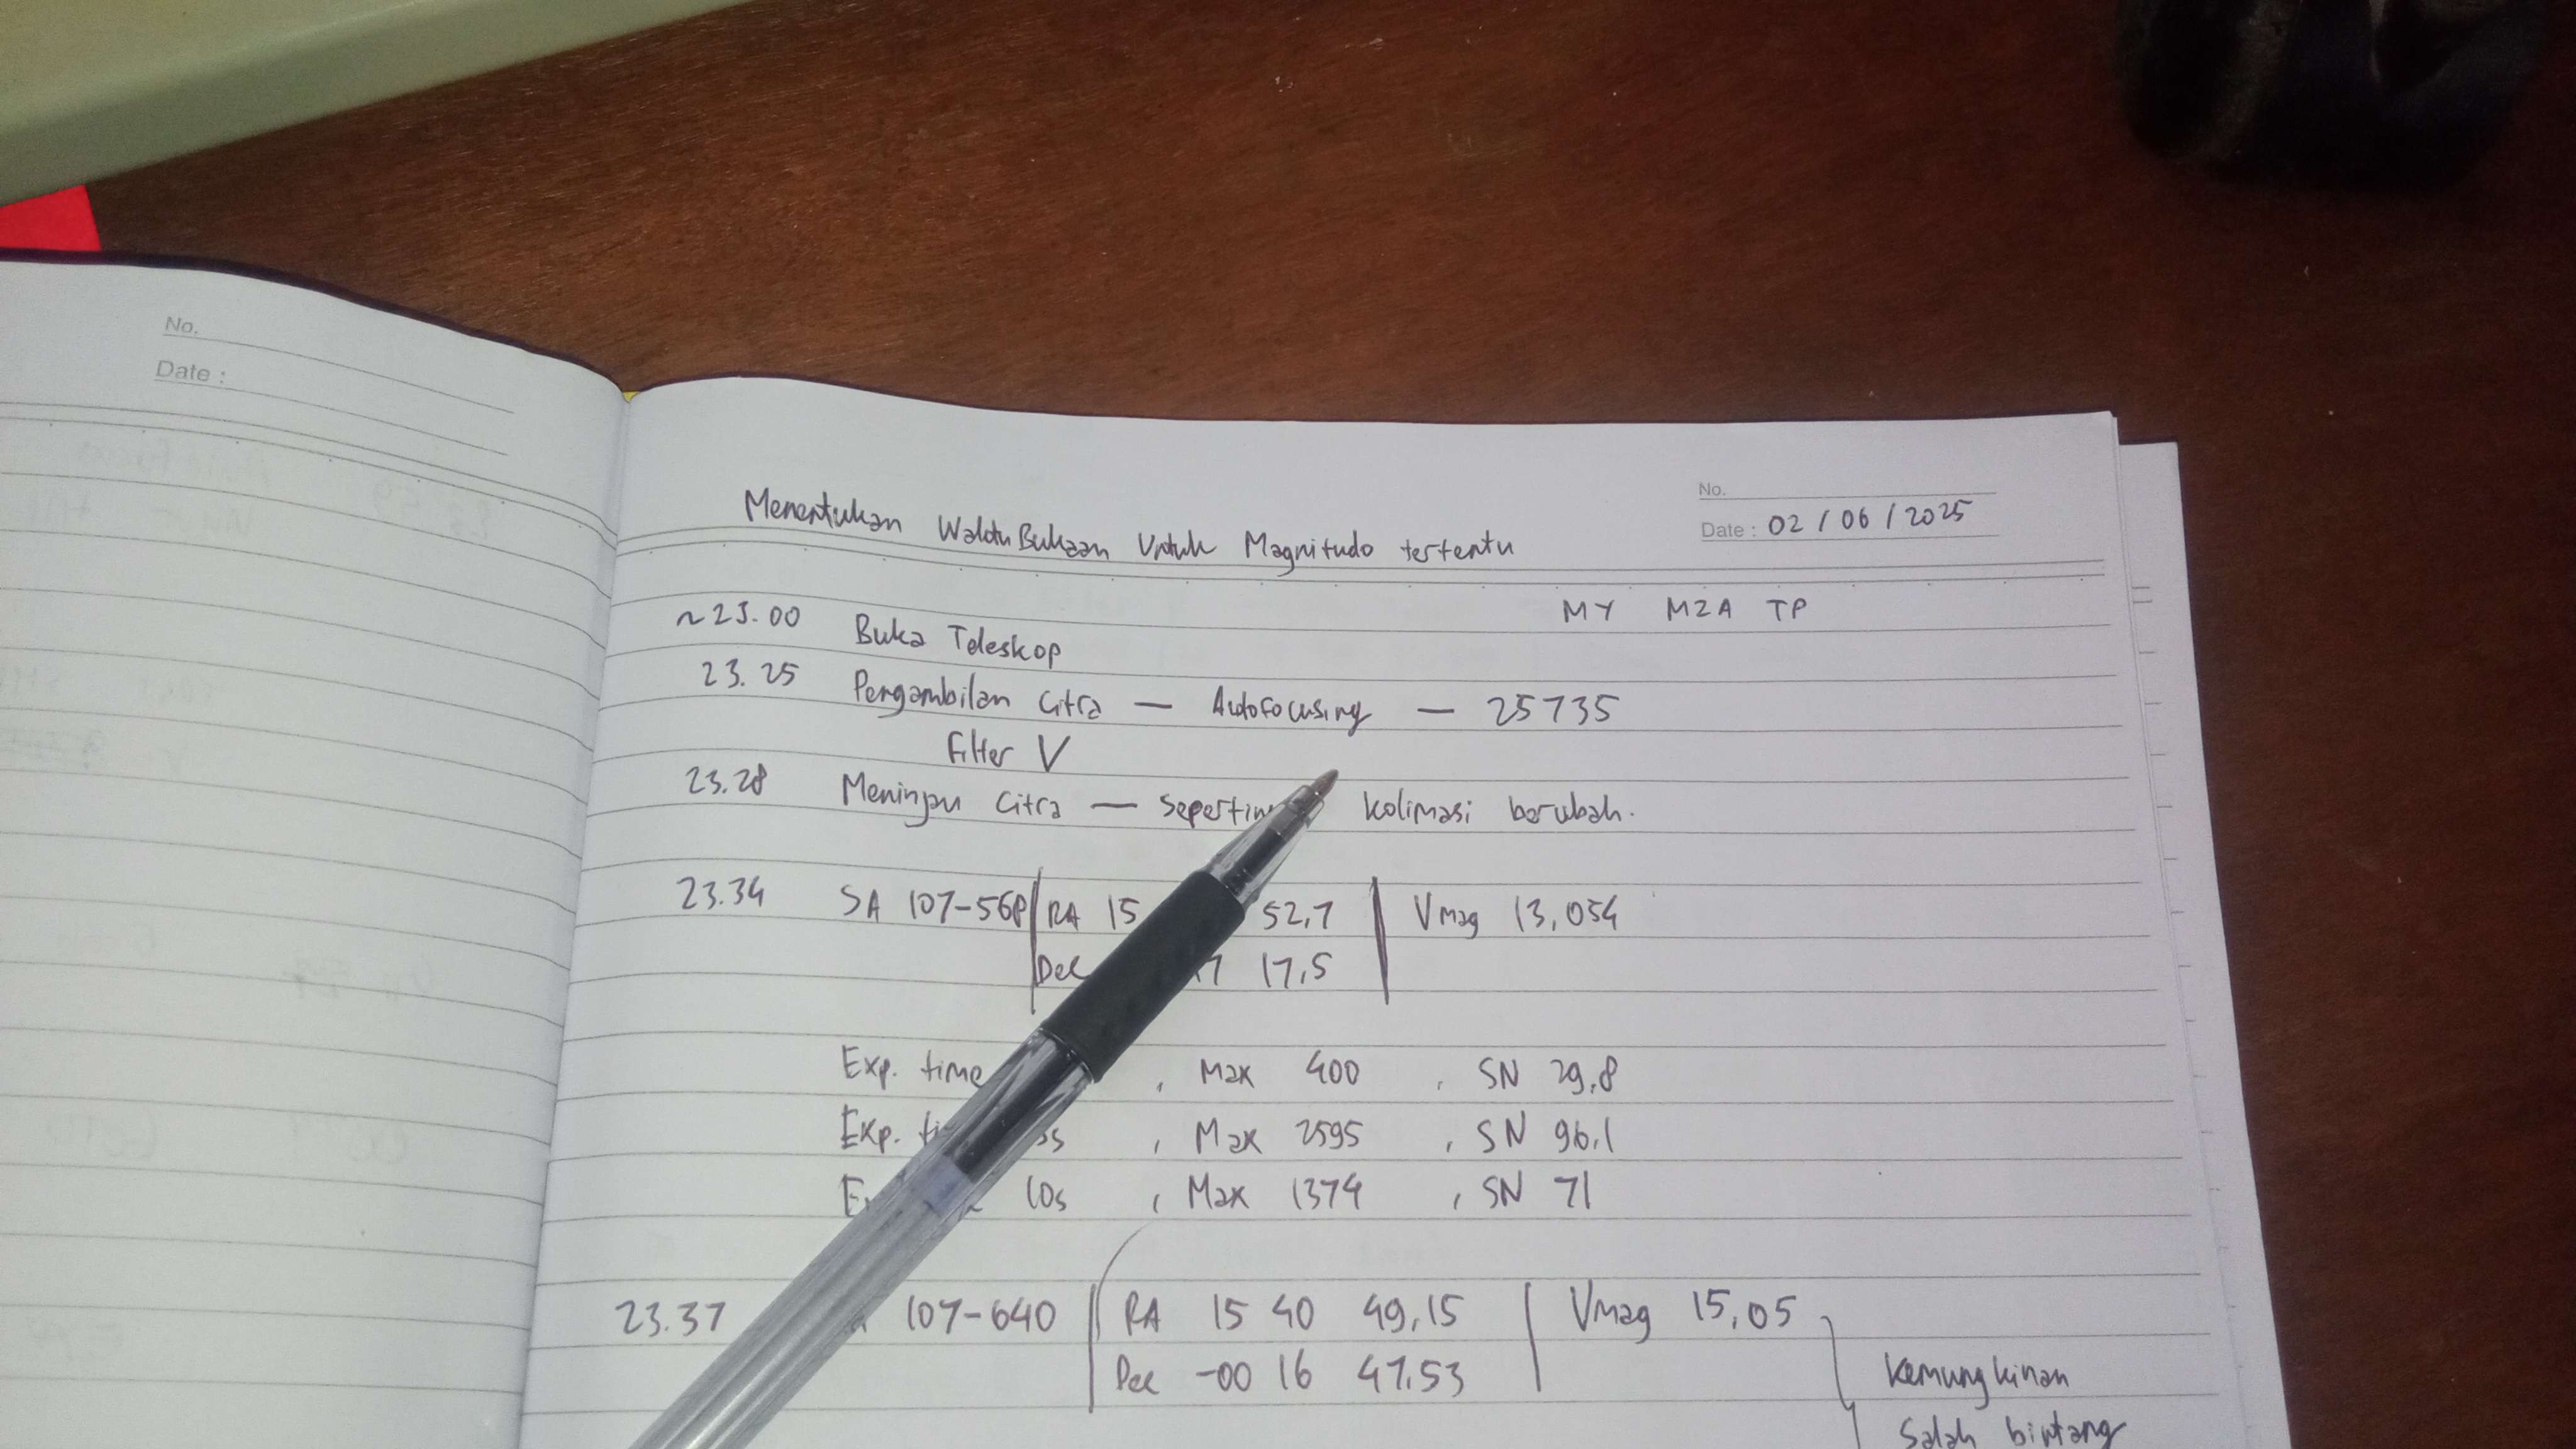 No.
Date :
No.
Date : 02 / 06 / 2025
Menentukan Waktu Bukaan Untuk Magnitudo tertentu
MY MZA TP
~23.00 Buka Teleskop
23.25 Pengambilan Citra — Autofocusing — 25735
Filter V
23.28 Meninjau Citra — kolimasi berubah.
23.34 SA 107-568 RA 15 52,7 Vmag 13,054
Dec 17,5
Exp. time , Max 400 , SN 29,8
Exp. , Max 2595 , SN 96,1
10s , Max 1374 , SN 71
23.37 107-640 RA 15 40 49,15 Vmag 15,05
Dec -00 16 47,53
Kemungkinan
Salah bintang